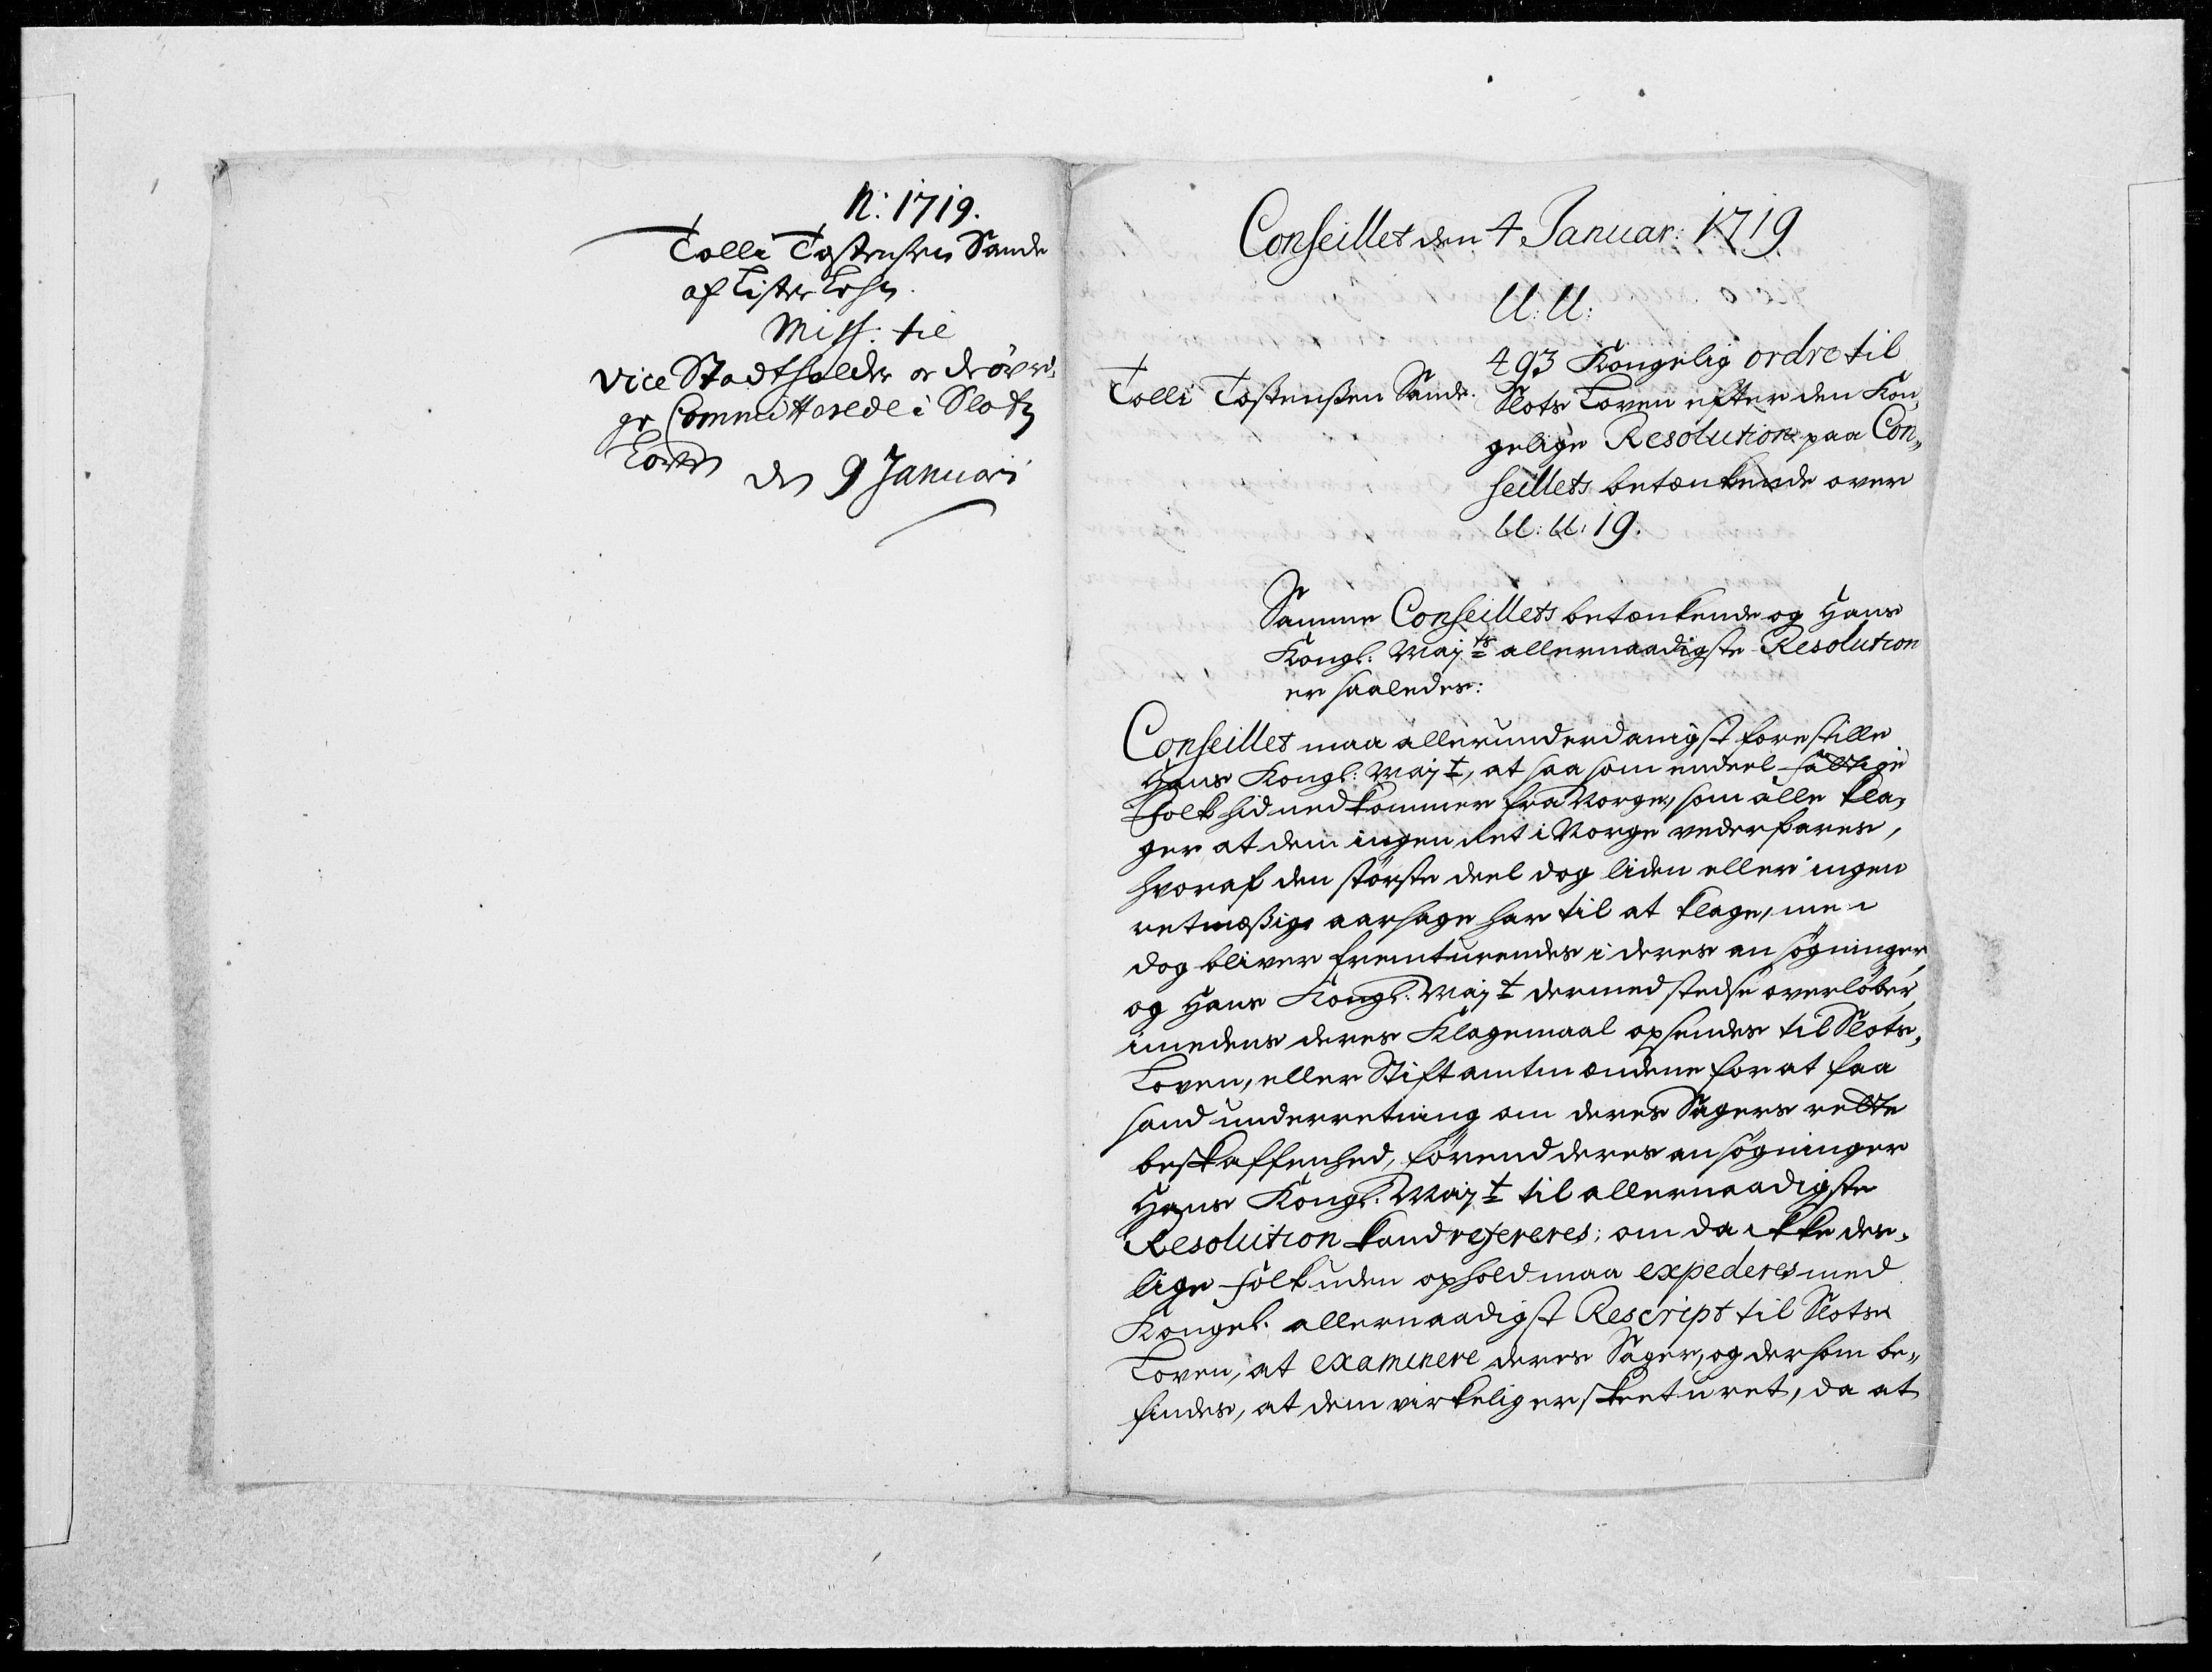 N: 1719.
Tolli Tostensen Sande
af Lister Lehn.
Miss: til
Vice Stadtholder oc de övri¬
ge Committerede i Slotz
Loven
den 9 Januari
Conseillet den 4 Januar: 1719
U: U:
Tolli Tostensen Sande.
493 Kongelig ordre til
Slots Loven efter den Kon„
gelige Resolution paa Con„
seillets betænkende over
U: U: 19.
Samme Conseillets betænkende og Hans
Kongl: Maj:ts allernaadigste Resolution
er saaledes:
Conseillet maa allerunderdanigst forestille
Hans Kongl: Majt, at saasom endeel fattige
folk hid ned kommer fra Norge, som alle kla„
ger at dem ingen Ret i Norge vederfares,
hvoraf den störste deel dog liden eller ingen
retmæssige aarsage har til at klage, men
dog bliver fremturendes i deres ansögninger
og Hans Kongl: Majt dermed stedse overlöber,
imedens deres Klagemaal opsendes til Slots„
Loven, eller Stiftamtmændene for at faa
sand underretning om deres Sagers rette
beskaffenhed, förend deres ansögninger
Hans Kongl: Majt til allernaadigste
Resolution kand refereres; om da ikke des„
lige folk uden ophold maa expederes med
Kongel. allernaadigst Rescript til Slots
Loven, at examinere deres Sager, og dersom be„
findes, at dem virkelig er skeet uret, da at